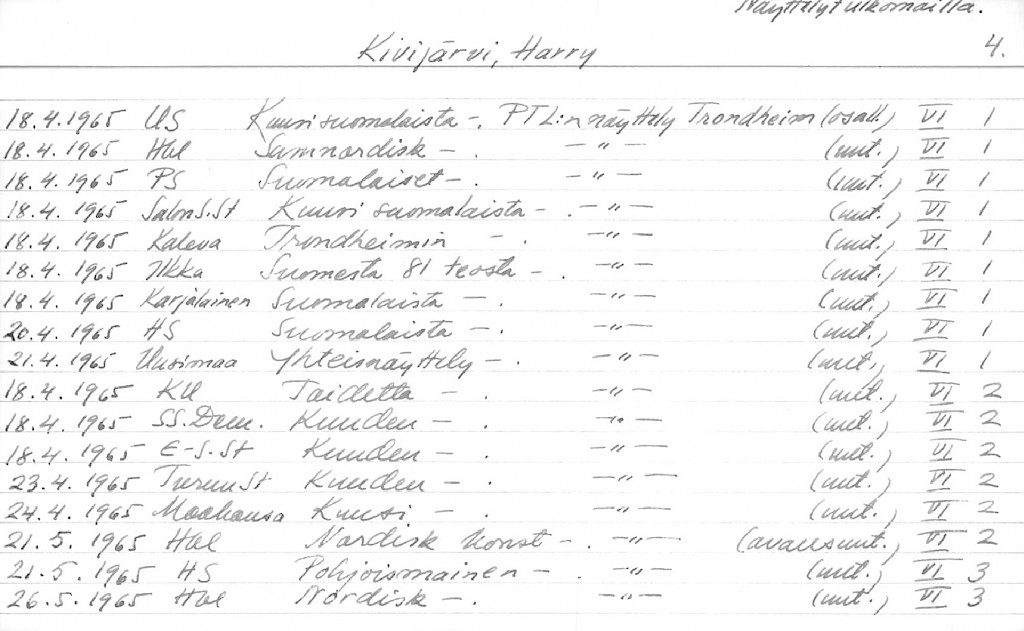 Näyttelyt ulkomailla.
Kivijärvi, Harry 4.
18.4.1965 US Kuusi suomalaista -. PTL:n näyttely Trondheim (osall.) VI 1
18.4.1965 Hbl Samnordisk - . -"- (uut.) VI 1
18.4.1965 PS Suomalaiset - . -"- (uut.) VI 1
18.4.1965 SalonS.St Kuusi suomalaista - . -"- (uut.) VI 1
18.4.1965 Kaleva Trondheimin - . -"- (uut.) VI 1
18.4.1965 Ilkka Suomesta 81 teosta - . -"- (uut.) VI 1
18.4.1965 Karjalainen Suomalaista - . -"- (uut.) VI 1
20.4.1965 HS Suomalaista - . -"- (uut.) VI 1
21.4.1965 Uusimaa Yhteisnäyttely - . -"- (uut.) VI 1
18.4.1965 KU Taidetta - . -"- (uut.) VI 2
18.4.1965 SS.Dem. Kuuden - . -"- (uut.) VI 2
18.4.1965 E-S.St Kuuden - . -"- (uut.) VI 2
23.4.1965 TurunSt Kuuden - . -"- (uut.) VI 2
24.4.1965 Maakansa Kuusi - . -"- (uut.) VI 2
21.5.1965 Hbl Nordisk konst - . -"- (avausuut.) VI 2
21.5.1965 HS Pohjoismainen - . -"- (uut.) VI 3
26.5.1965 Hbl Nordisk - . -"- (uut.) VI 3